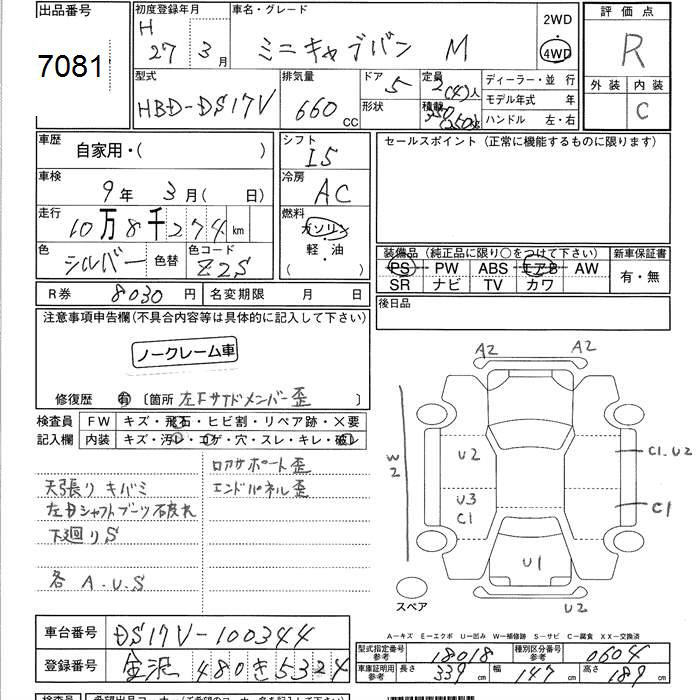 出品番号
7081
初度登録年月
H 27年 3月
車名・グレード
ミニキャブバン M
2WD
・
4WD
評価点
R
外装 内装
C
型式
HBD-DS17V
排気量
660 CC
ドア
5
形状
定員
2(4)人
積載
350(250)
ディーラー・並 行
モデル年式 年
ハンドル 左・右
車歴
自家用・( )
シフト
I5
セールスポイント (正常に機能するものに限ります)
車検
9年 3月( 日)
冷房
AC
走行
10万8千274km
燃料
ガソリン
・
軽・油
( )
色
シルバー
色替
色コード
Z2S
装備品 (純正品に限り○をつけて下さい)
PS PW ABS エアB AW
SR ナビ TV カワ
新車保証書
有・無
R券 8030円
名変期限 月 日
後日品
注意事項申告欄(不具合内容等は具体的に記入して下さい)
ノークレーム車
修復歴 有 〔箇所 左Fサイドメンバー歪 〕
検査員
記入欄
FW キズ・飛石・ヒビ割・リペア跡・X要
内装 キズ・汚レ・コゲ・穴・スレ・キレ・破レ
ロアサポート歪
天張りキバミ
エンドパネル歪
左右シャフトブーツ破れ
下廻りS
各 A.U.S
A2 A2
W2
U2
C1.U2
U3
C1
C1
U1
U2
スペア
A―キズ E―エクボ U―凹み W―補修跡 S―サビ C―腐食 XX―交換済
車台番号 DS17V-100344
登録番号 金沢 480き5324
型式指定番号
参考
18018
種別区分番号
参考
0604
車庫証明用
参考
長さ 339cm
幅 147cm
高さ 189cm